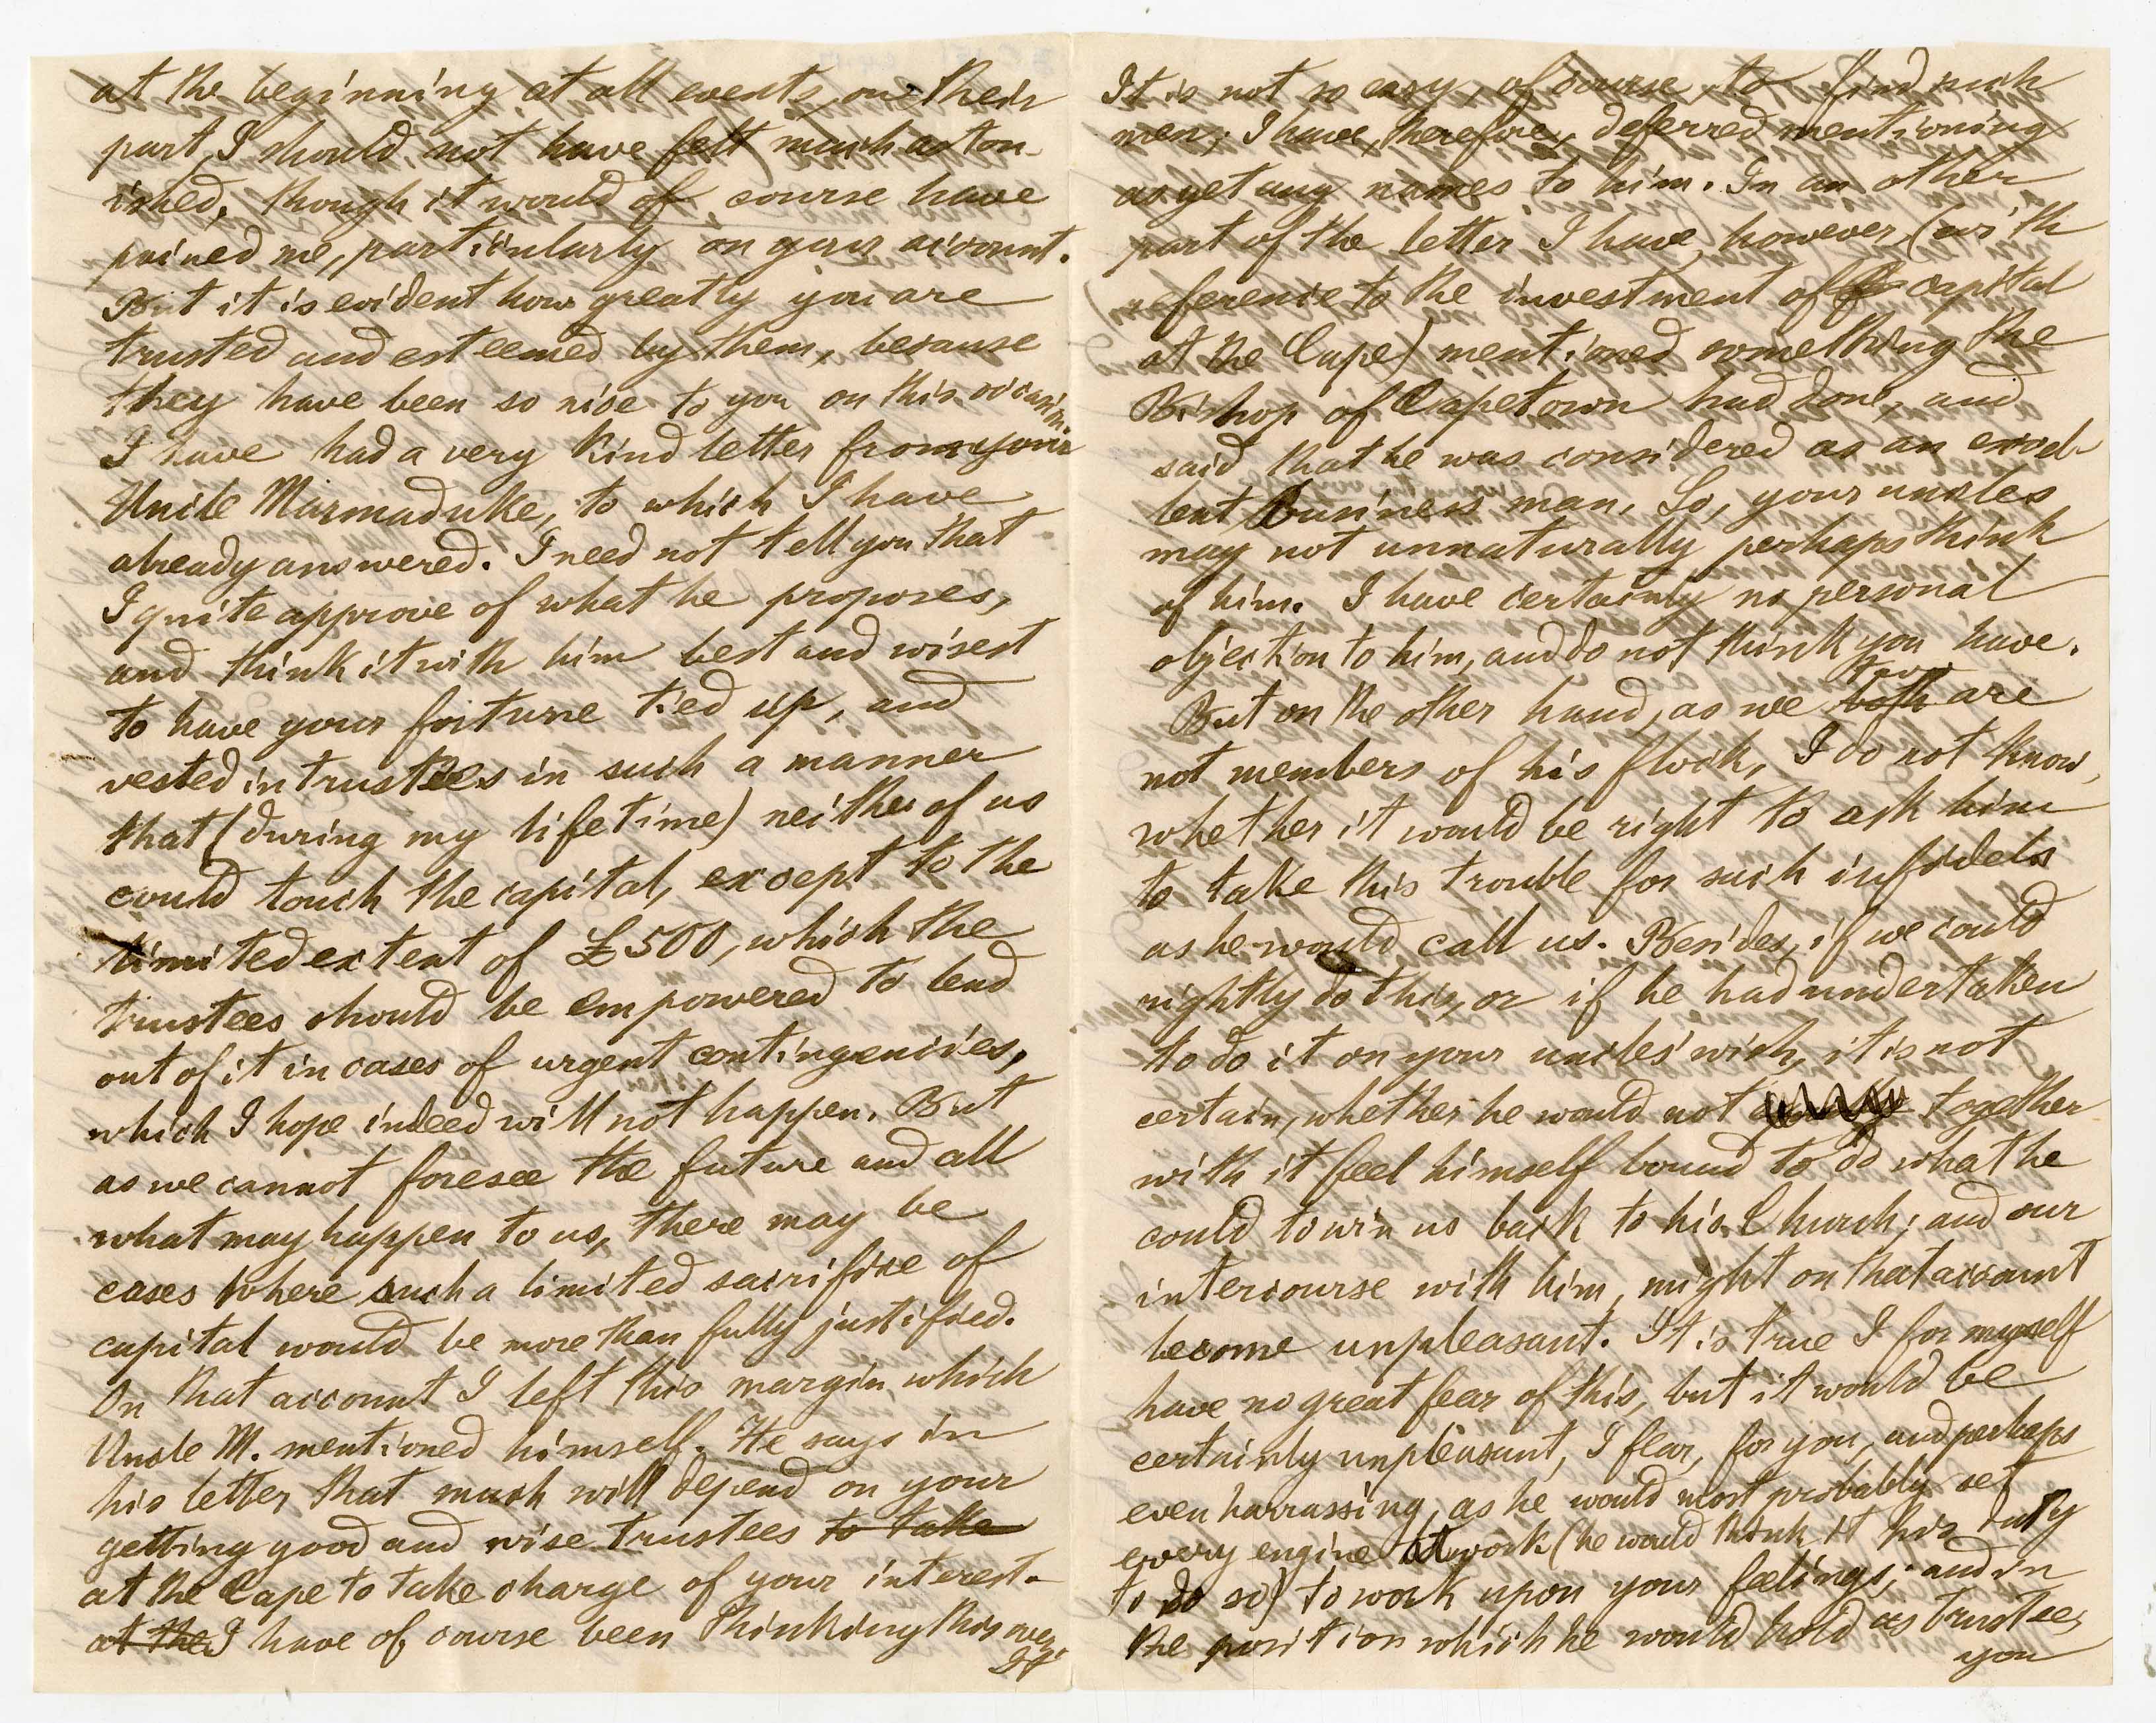 at the beginning at all events, on their
part, I should not have felt much aston-
ished, though it would of course have
pained me, particularly on your account.
But it is evident how greatly you are
trusted and esteemed by them, because
they have been so nice to you on this occasion.
I have had a very kind letter from your
Uncle Marmaduke, to which I have
already answered. I need not tell you that
I quite approve of what he proposes,
and think it with him best and wisest
to have your fortune tied up, and
vested in trustees in such a manner
that (during my lifetime) neither of us
could touch the capital, except to the
limited extent of £500, which the
trustees should be empowered to lend
out of it in cases of urgent contingencies,
which I hope indeed will not happen. But
as we cannot foresee the future and all
what may happen to us, there may be
cases where such a limited sacrifice of
capital would be more than fully justified.
On that account I left this margin, which
Uncle M. mentioned himself. He says in
his letter, that much will depend on your
getting good and wise trustees to take
at the Cape to take charge of your interest.
at the I have of course been thinking this over.
It
It is not so easy, of course, to find such
men; I have, therefore, deferred mentioning
as yet any names to him. In an other
part of the letter I have, however, (with
reference to the investment of capital
at the Cape) mentioned something the
Bishop of Capetown had done, and
said that he was considered as an excel-
lent business man. So, your uncles
may not unnaturally perhaps think
of him. I have certainly no personal
objection to him, and do not think you have.
But on the other hand, as we both two are
not members of his flock, I do not know,
whether it would be right to ask him
to take this trouble for such infidels
as he would call us. Besides, if we could
rightly do this, or if he had undertaken
to do it on your uncles' wish, it is not
certain, whether he would not together
with it feel himself bound to do what he
could to win us back to his Church; and our
intercourse with him, might on that account
become unpleasant. It is true I for myself
have no great fear of this, but it would be
certainly unpleasant, I fear, for you, and perhaps
even harrassing, as he would most probably set
every engine at work (he would think it his duty
to do so) to work upon your feelings; and in
the position which he would hold as trustee,
you